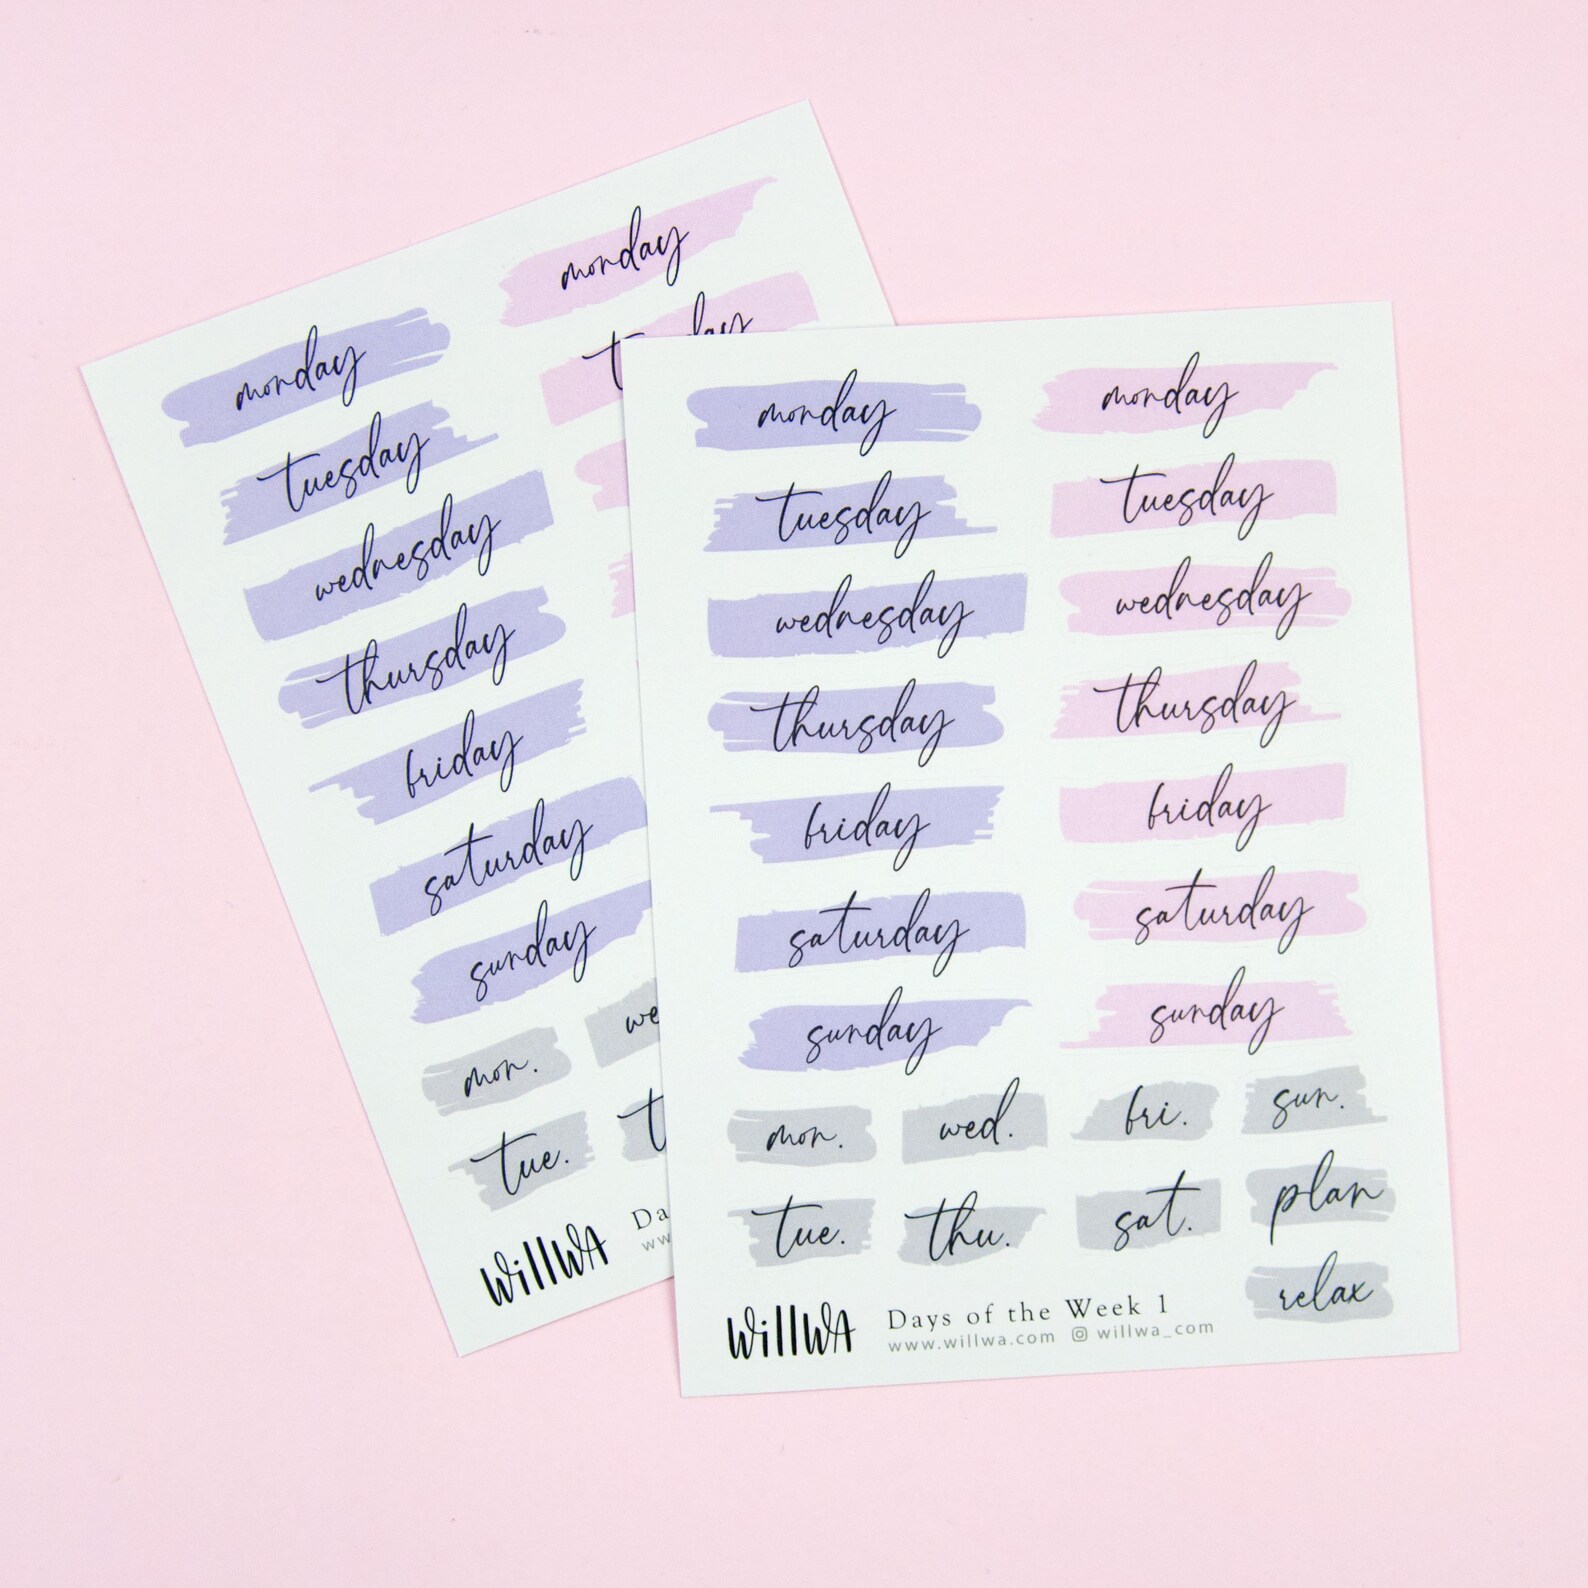 monday
tuesday
monday
tuesday
wednesday
thursday
friday
saturday
sunday
mon.
tue.
WillWA
monday
monday
tuesday
tuesday
wednesday
wednesday
thursday
thursday
friday
friday
saturday
saturday
sunday
sunday
mon.
wed.
fri.
sun.
tue.
thu.
sat.
plan
relax
WillWA
Days of the Week 1
www.willwa.com willwa_com